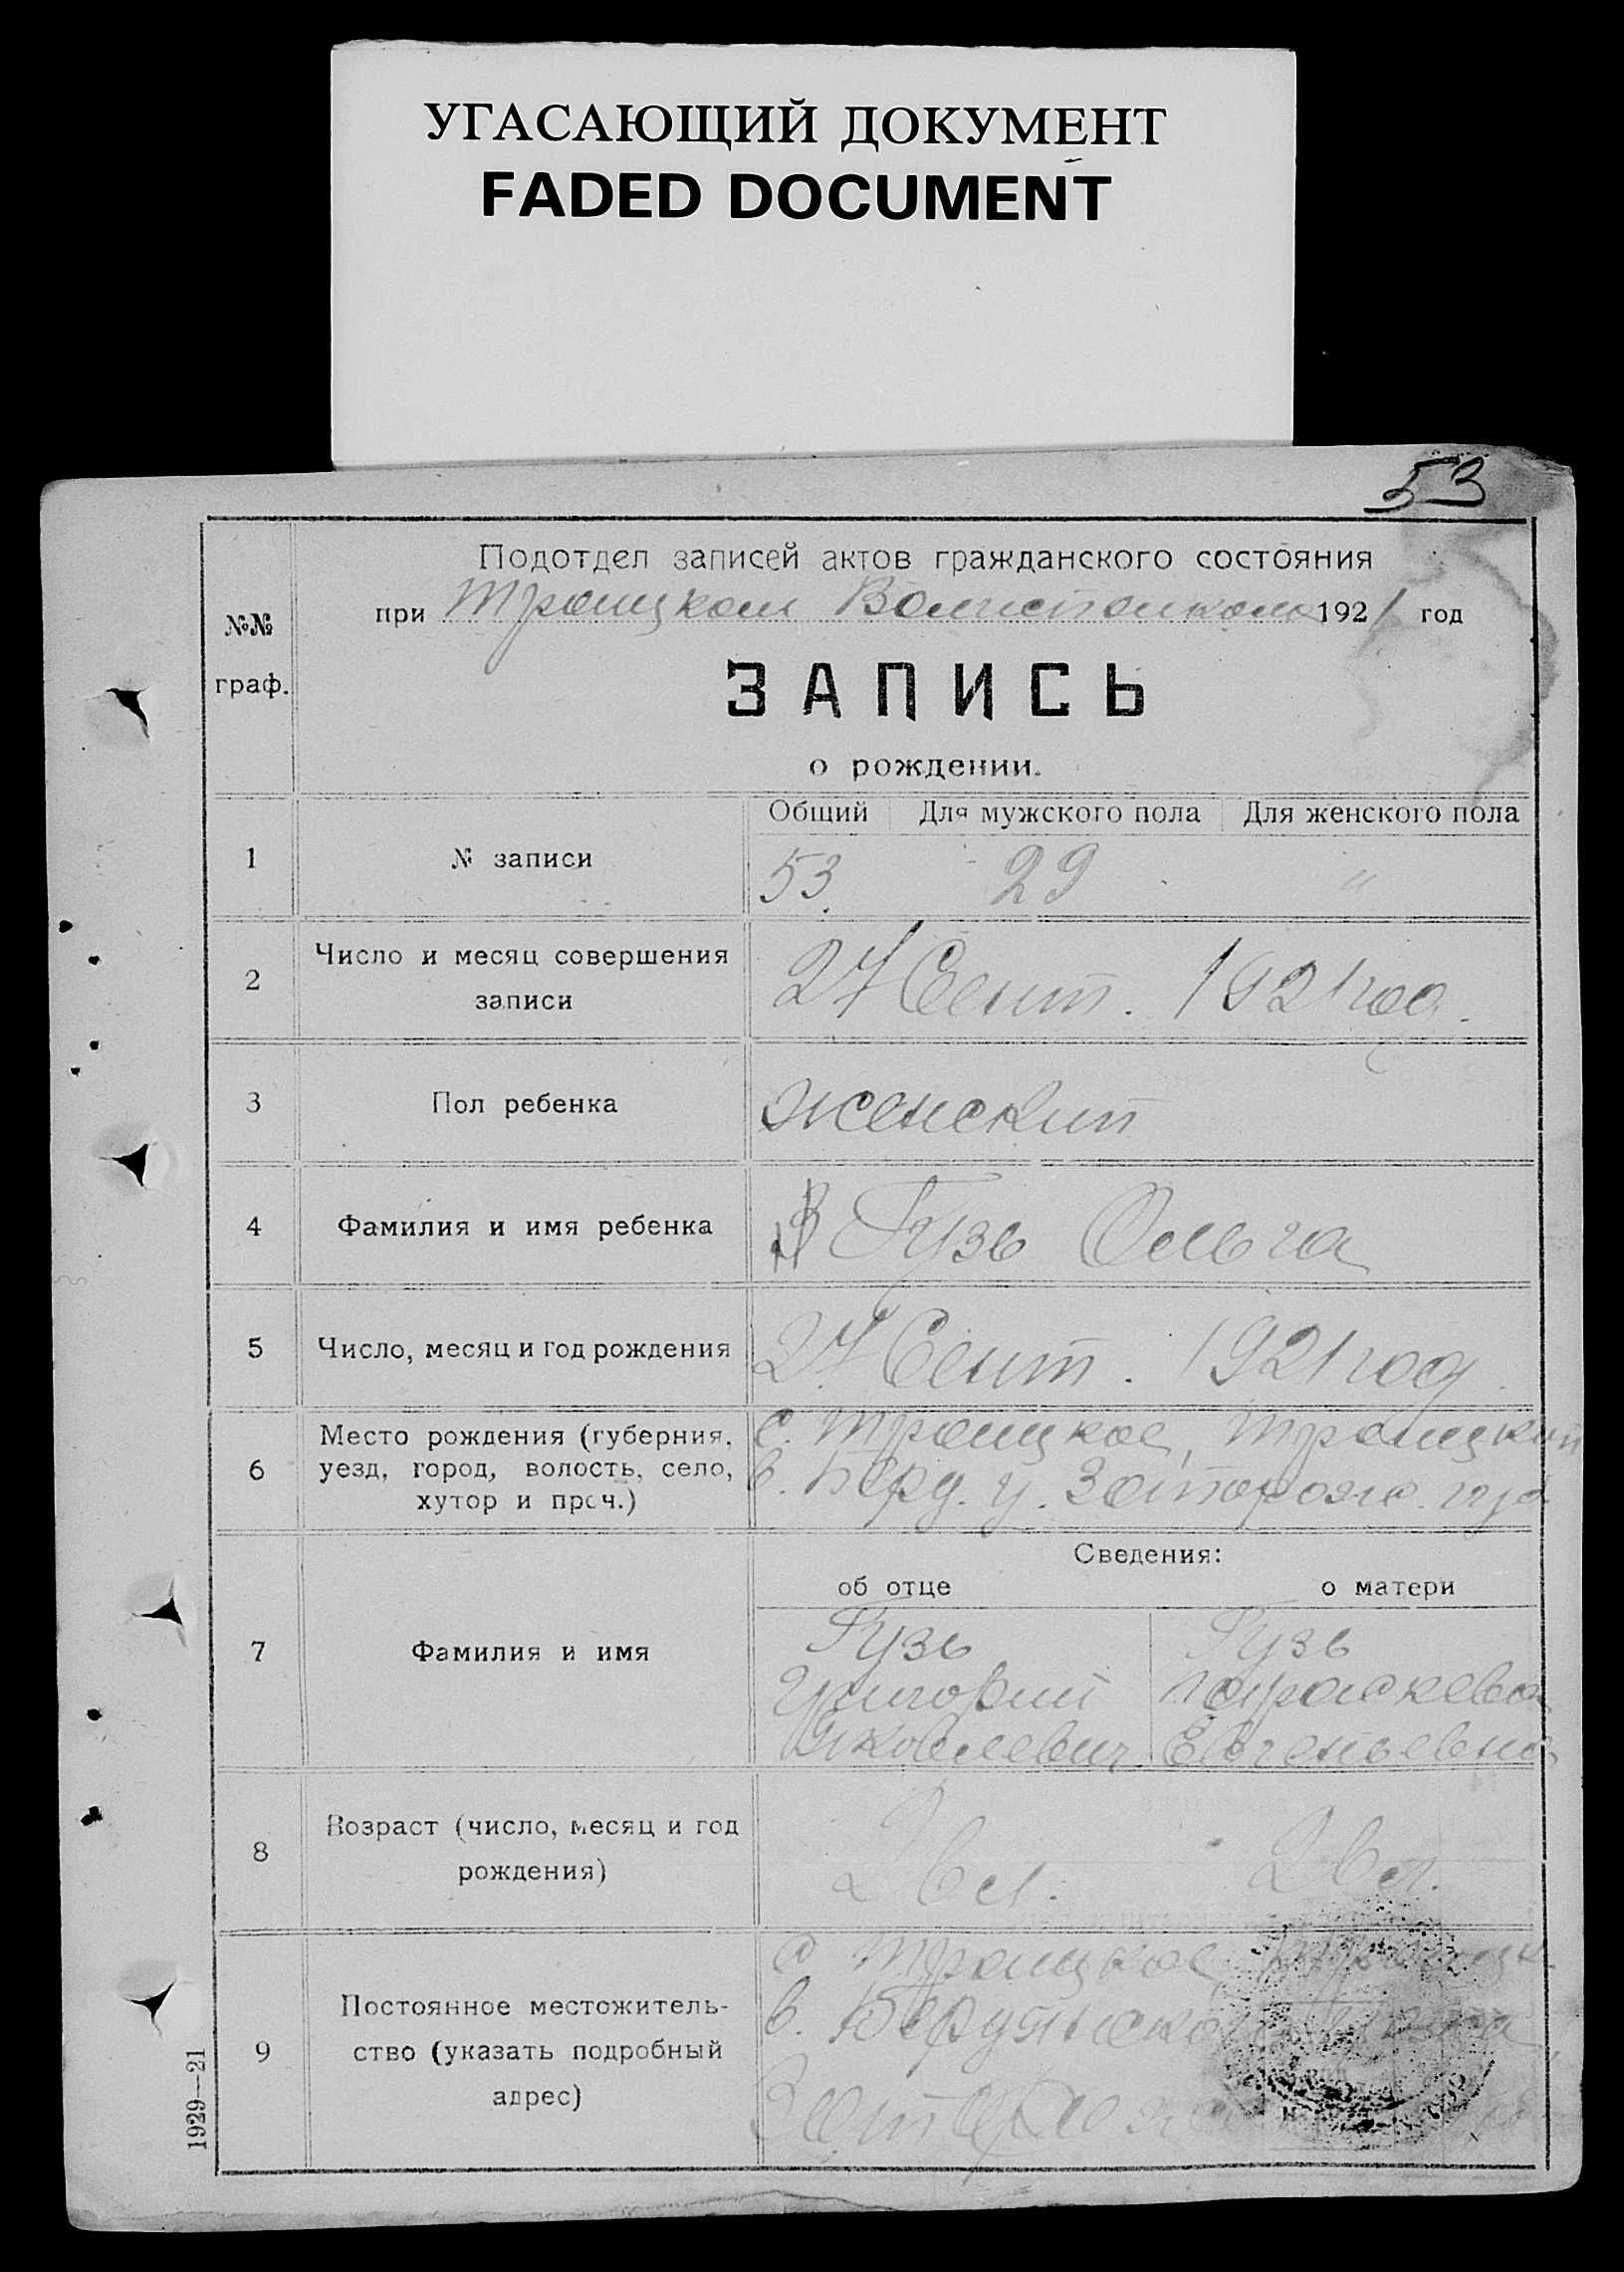 УГАСАЮЩИЙ ДОКУМЕНТ
FADED DOCUMENT
53
№№
граф.
Подотдел записей актов гражданского состояния
при Троицком Волисполкоме 1921 год
ЗАПИСЬ
о рождении.
Общий Для мужского пола Для женского пола
1 № записи 53 29 "
2 Число и месяц совершения
записи
27 Сент. 1921 год.
3 Пол ребенка женский
4 Фамилия и имя ребенка Гузь Ольга
5 Число, месяц и год рождения 27 Сент. 1921 год
6 Место рождения (губерния,
уезд, город, волость, село,
хутор и проч.)
с. Троицкое, Троицкий
в. Берд. у. Запорож. губ
Сведения:
об отце о матери
7 Фамилия и имя
Гузь Гузь
Григорий Параскева
Яковлевич Евгеньевна
8 Возраст (число, месяц и год
рождения)
26 л. 26 л.
9 Постоянное местожитель-
ство (указать подробный
адрес)
с Троицкое
в. Бердянско
1929—21